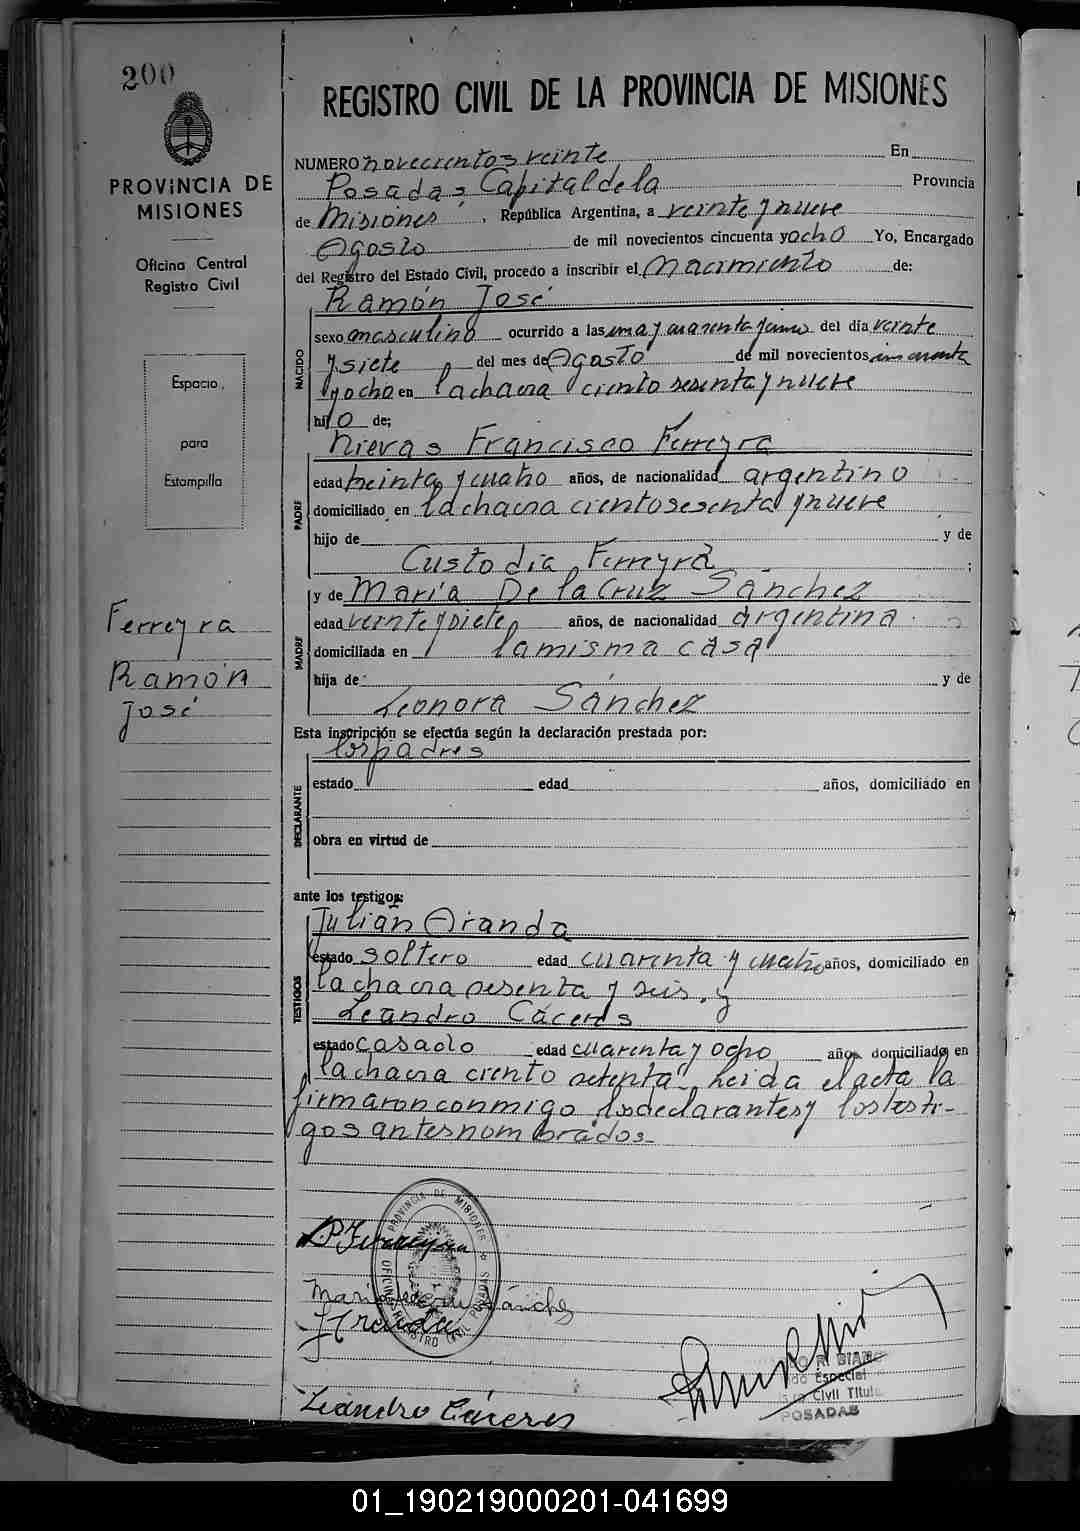 200
PROVINCIA DE
MISIONES
Oficina Central
Registro Civil
Espacio
para
Estampilla
Ferreyra
Ramón
José
REGISTRO CIVIL DE LA PROVINCIA DE MISIONES
NUMERO novecientos veinte En
Posadas Capital de la Provincia
de Misiones, República Argentina, a veinte y nueve
Agosto de mil novecientos cincuenta y ocho Yo, Encargado
del Registro del Estado Civil, procedo a inscribir el nacimiento de:
NACIDO
Ramón José
sexo masculino ocurrido a las una y cuarenta y cinco del día veinte
y siete del mes de Agosto de mil novecientos cincuenta
y ocho en la chacra ciento sesenta y nueve
hijo de:
PADRE
Nievas Francisco Ferreyra
edad treinta y cuatro años, de nacionalidad argentino
domiciliado en la chacra ciento sesenta y nueve
hijo de y de
Custodia Ferreyra;
MADRE
y de María De la Cruz Sánchez
edad veinte y siete años, de nacionalidad argentina
domiciliada en la misma casa
hija de y de
Leonora Sánchez
Esta inscripción se efectúa según la declaración prestada por:
los padres
DECLARANTE
estado edad años, domiciliado en
obra en virtud de
ante los testigos:
TESTIGOS
Julián Aranda
estado soltero edad cuarenta y cuatro años, domiciliado en
la chacra sesenta y seis, y
Leandro Cáceres
estado casado edad cuarenta y ocho años domiciliado en
la chacra ciento setenta. Leida el acta la
firmaron conmigo los declarantes y los testi-
gos antes nombrados.
PROVINCIA DE MISIONES
Ferreyra
Maria de la Cruz Sánchez
J Aranda
Leandro Cáceres
Especial
Civil Titular
POSADAS
01_190219000201-041699